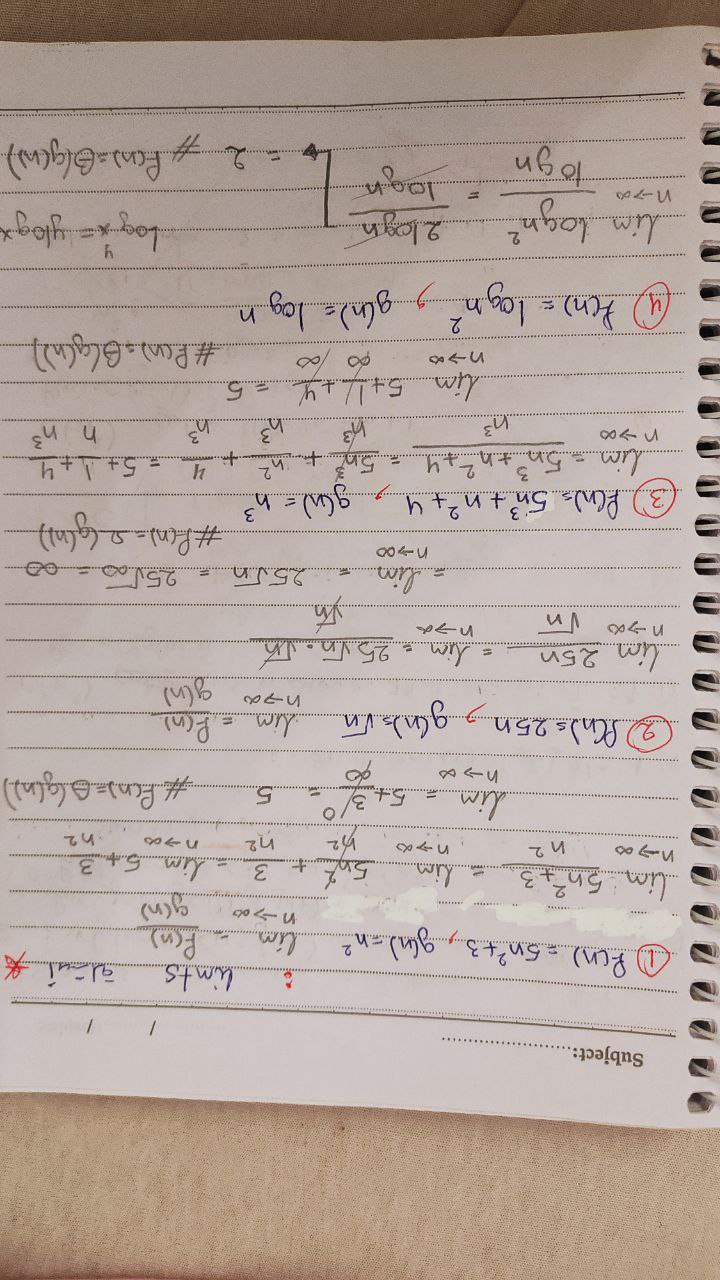 Subject:........................ / /
* limts :
① f(n) = 5n²+3 , g(n) = n² lim n→∞ = f(n)/g(n)
lim n→∞ (5n²+3)/n² = lim n→∞ 5n²/n² + 3/n² = lim n→∞ 5+3/n²
lim n→∞ = 5+3/∞ 0 = 5 # f(n)=Θ(g(n))
② f(n)=25n , g(n)=√n lim n→∞ = f(n)/g(n)
lim n→∞ 25n/√n = lim n→∞ = 25√n·√n/√n
= lim n→∞ = 25√n = 25√∞ = ∞
# f(n)=Ω(g(n))
③ f(n)= 5n³+n²+4 , g(n)= n³
lim n→∞ = (5n³+n²+4)/n³ = 5n³/n³ + n²/n³ + 4/n³ = 5+1/n+4/n³
lim n→∞ 5+1/∞+4/∞ = 5
# f(n)=Θ(g(n))
④ f(n) = log n² , g(n)= log n
lim n→∞ log n²/log n = 2logn/logn log x^y = y log x
= 2 # f(n)=Θ(g(n))